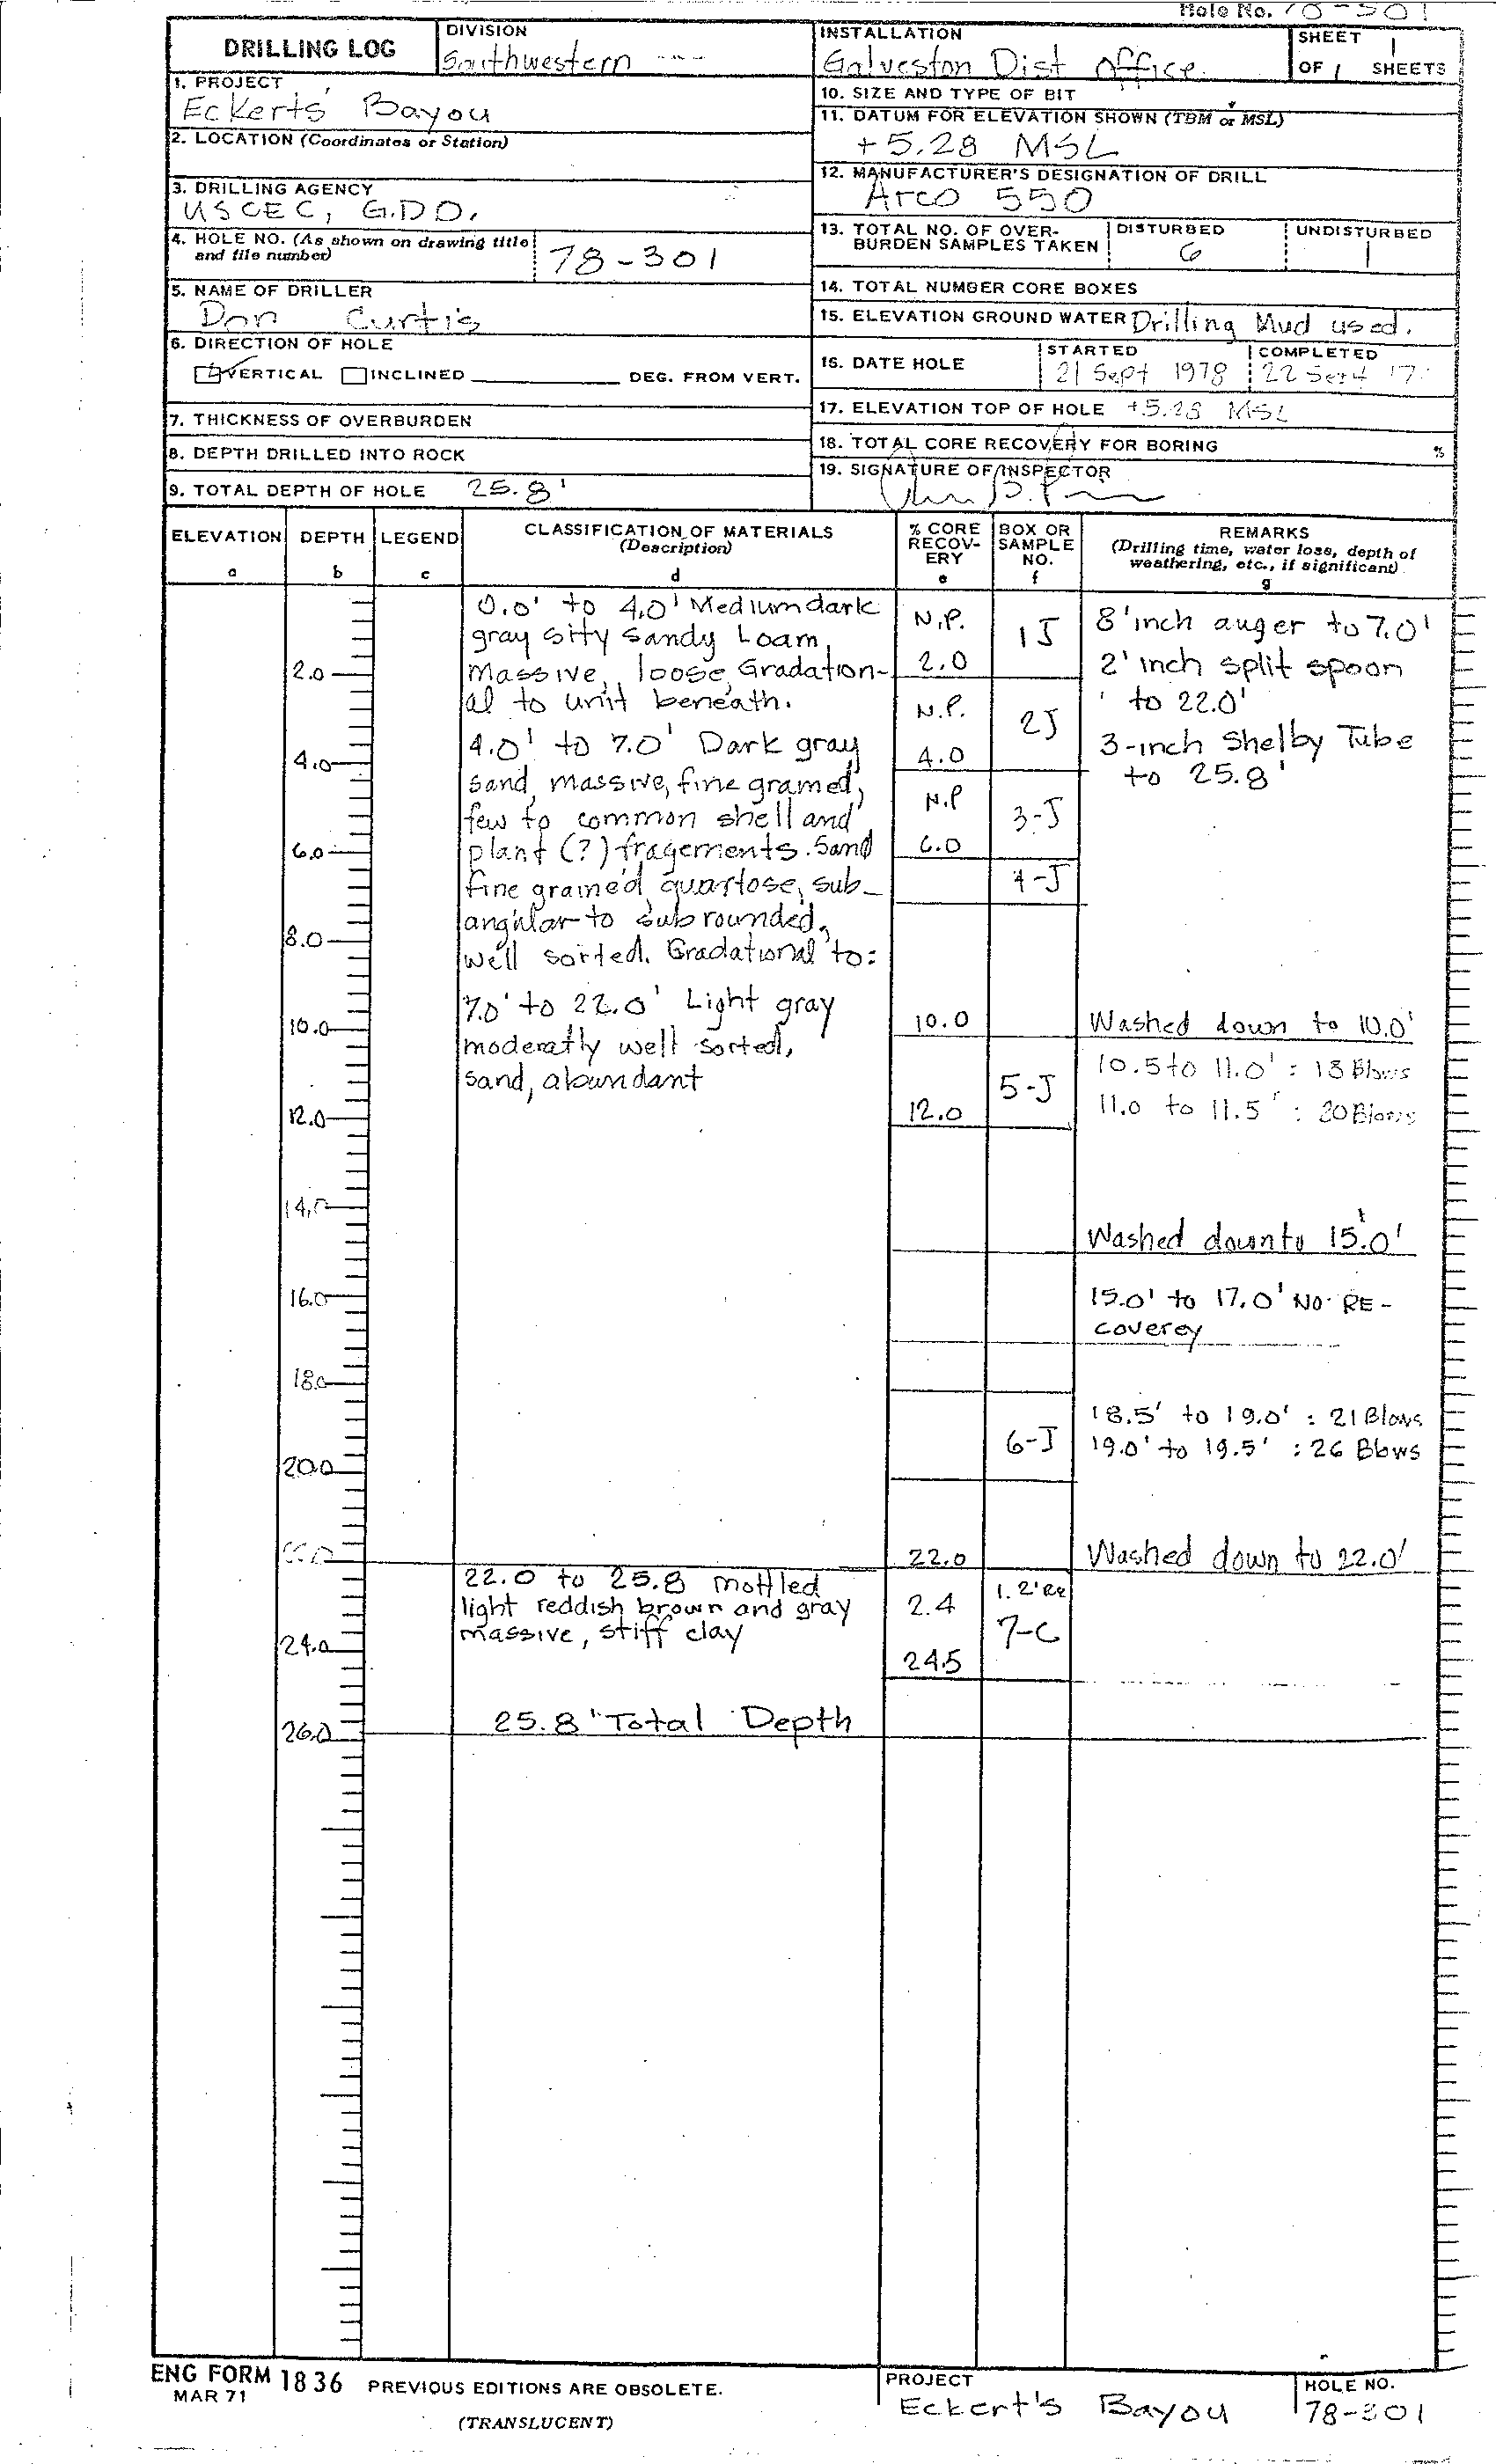 Hole No. 78-301
DRILLING LOG
DIVISION
Southwestern
INSTALLATION
Galveston Dist Office
SHEET 1
OF 1 SHEETS
1. PROJECT
Eckerts Bayou
10. SIZE AND TYPE OF BIT
11. DATUM FOR ELEVATION SHOWN (TBM or MSL)
+5.28 MSL
2. LOCATION (Coordinates or Station)
12. MANUFACTURER'S DESIGNATION OF DRILL
Arco 550
3. DRILLING AGENCY
USCEC, G.D.O.
13. TOTAL NO. OF OVER-
BURDEN SAMPLES TAKEN
DISTURBED
6
UNDISTURBED
1
4. HOLE NO. (As shown on drawing title
and file number)
78-301
14. TOTAL NUMBER CORE BOXES
5. NAME OF DRILLER
Don Curtis
15. ELEVATION GROUND WATER Drilling Mud used.
6. DIRECTION OF HOLE
VERTICAL INCLINED DEG. FROM VERT.
16. DATE HOLE
STARTED
21 Sept 1978
COMPLETED
22 Sept
17. ELEVATION TOP OF HOLE +5.28 MSL
7. THICKNESS OF OVERBURDEN
18. TOTAL CORE RECOVERY FOR BORING %
8. DEPTH DRILLED INTO ROCK
19. SIGNATURE OF INSPECTOR
9. TOTAL DEPTH OF HOLE 25.8'
ELEVATION
a
DEPTH
b
LEGEND
c
CLASSIFICATION OF MATERIALS
(Description)
d
% CORE
RECOV-
ERY
e
BOX OR
SAMPLE
NO.
f
REMARKS
(Drilling time, water loss, depth of
weathering, etc., if significant)
g
0.0' to 4.0' Medium dark
gray silty sandy Loam,
massive, loose, Gradation-
al to unit beneath.
4.0' to 7.0' Dark gray
sand, massive, fine grained,
few to common shell and
plant (?) fragements. Sand
fine grained quartose, sub-
angular to subrounded,
well sorted. Gradational to:
7.0' to 22.0' Light gray
moderatly well sorted,
sand, abundant
22.0 to 25.8 mottled
light reddish brown and gray
massive, stiff clay
25.8' Total Depth
2.0
4.0
6.0
8.0
10.0
12.0
14.0
16.0
18.0
20.0
22.0
24.0
26.0
N.P.
2.0
N.P.
4.0
N.P
6.0
10.0
12.0
22.0
2.4
24.5
1J
2J
3-J
4-J
5-J
6-J
1.2' Re
7-C
8'inch auger to 7.0'
2'inch split spoon
to 22.0'
3-inch Shelby Tube
to 25.8'
Washed down to 10.0'
10.5 to 11.0' : 18 Blows
11.0 to 11.5' : 20 Blows
Washed down to 15.0'
15.0' to 17.0' NO RE-
coverey
18.5' to 19.0' : 21 Blows
19.0' to 19.5' : 26 Blows
Washed down to 22.0'
ENG FORM 1836
MAR 71
PREVIOUS EDITIONS ARE OBSOLETE.
(TRANSLUCENT)
PROJECT
Eckert's Bayou
HOLE NO.
78-301